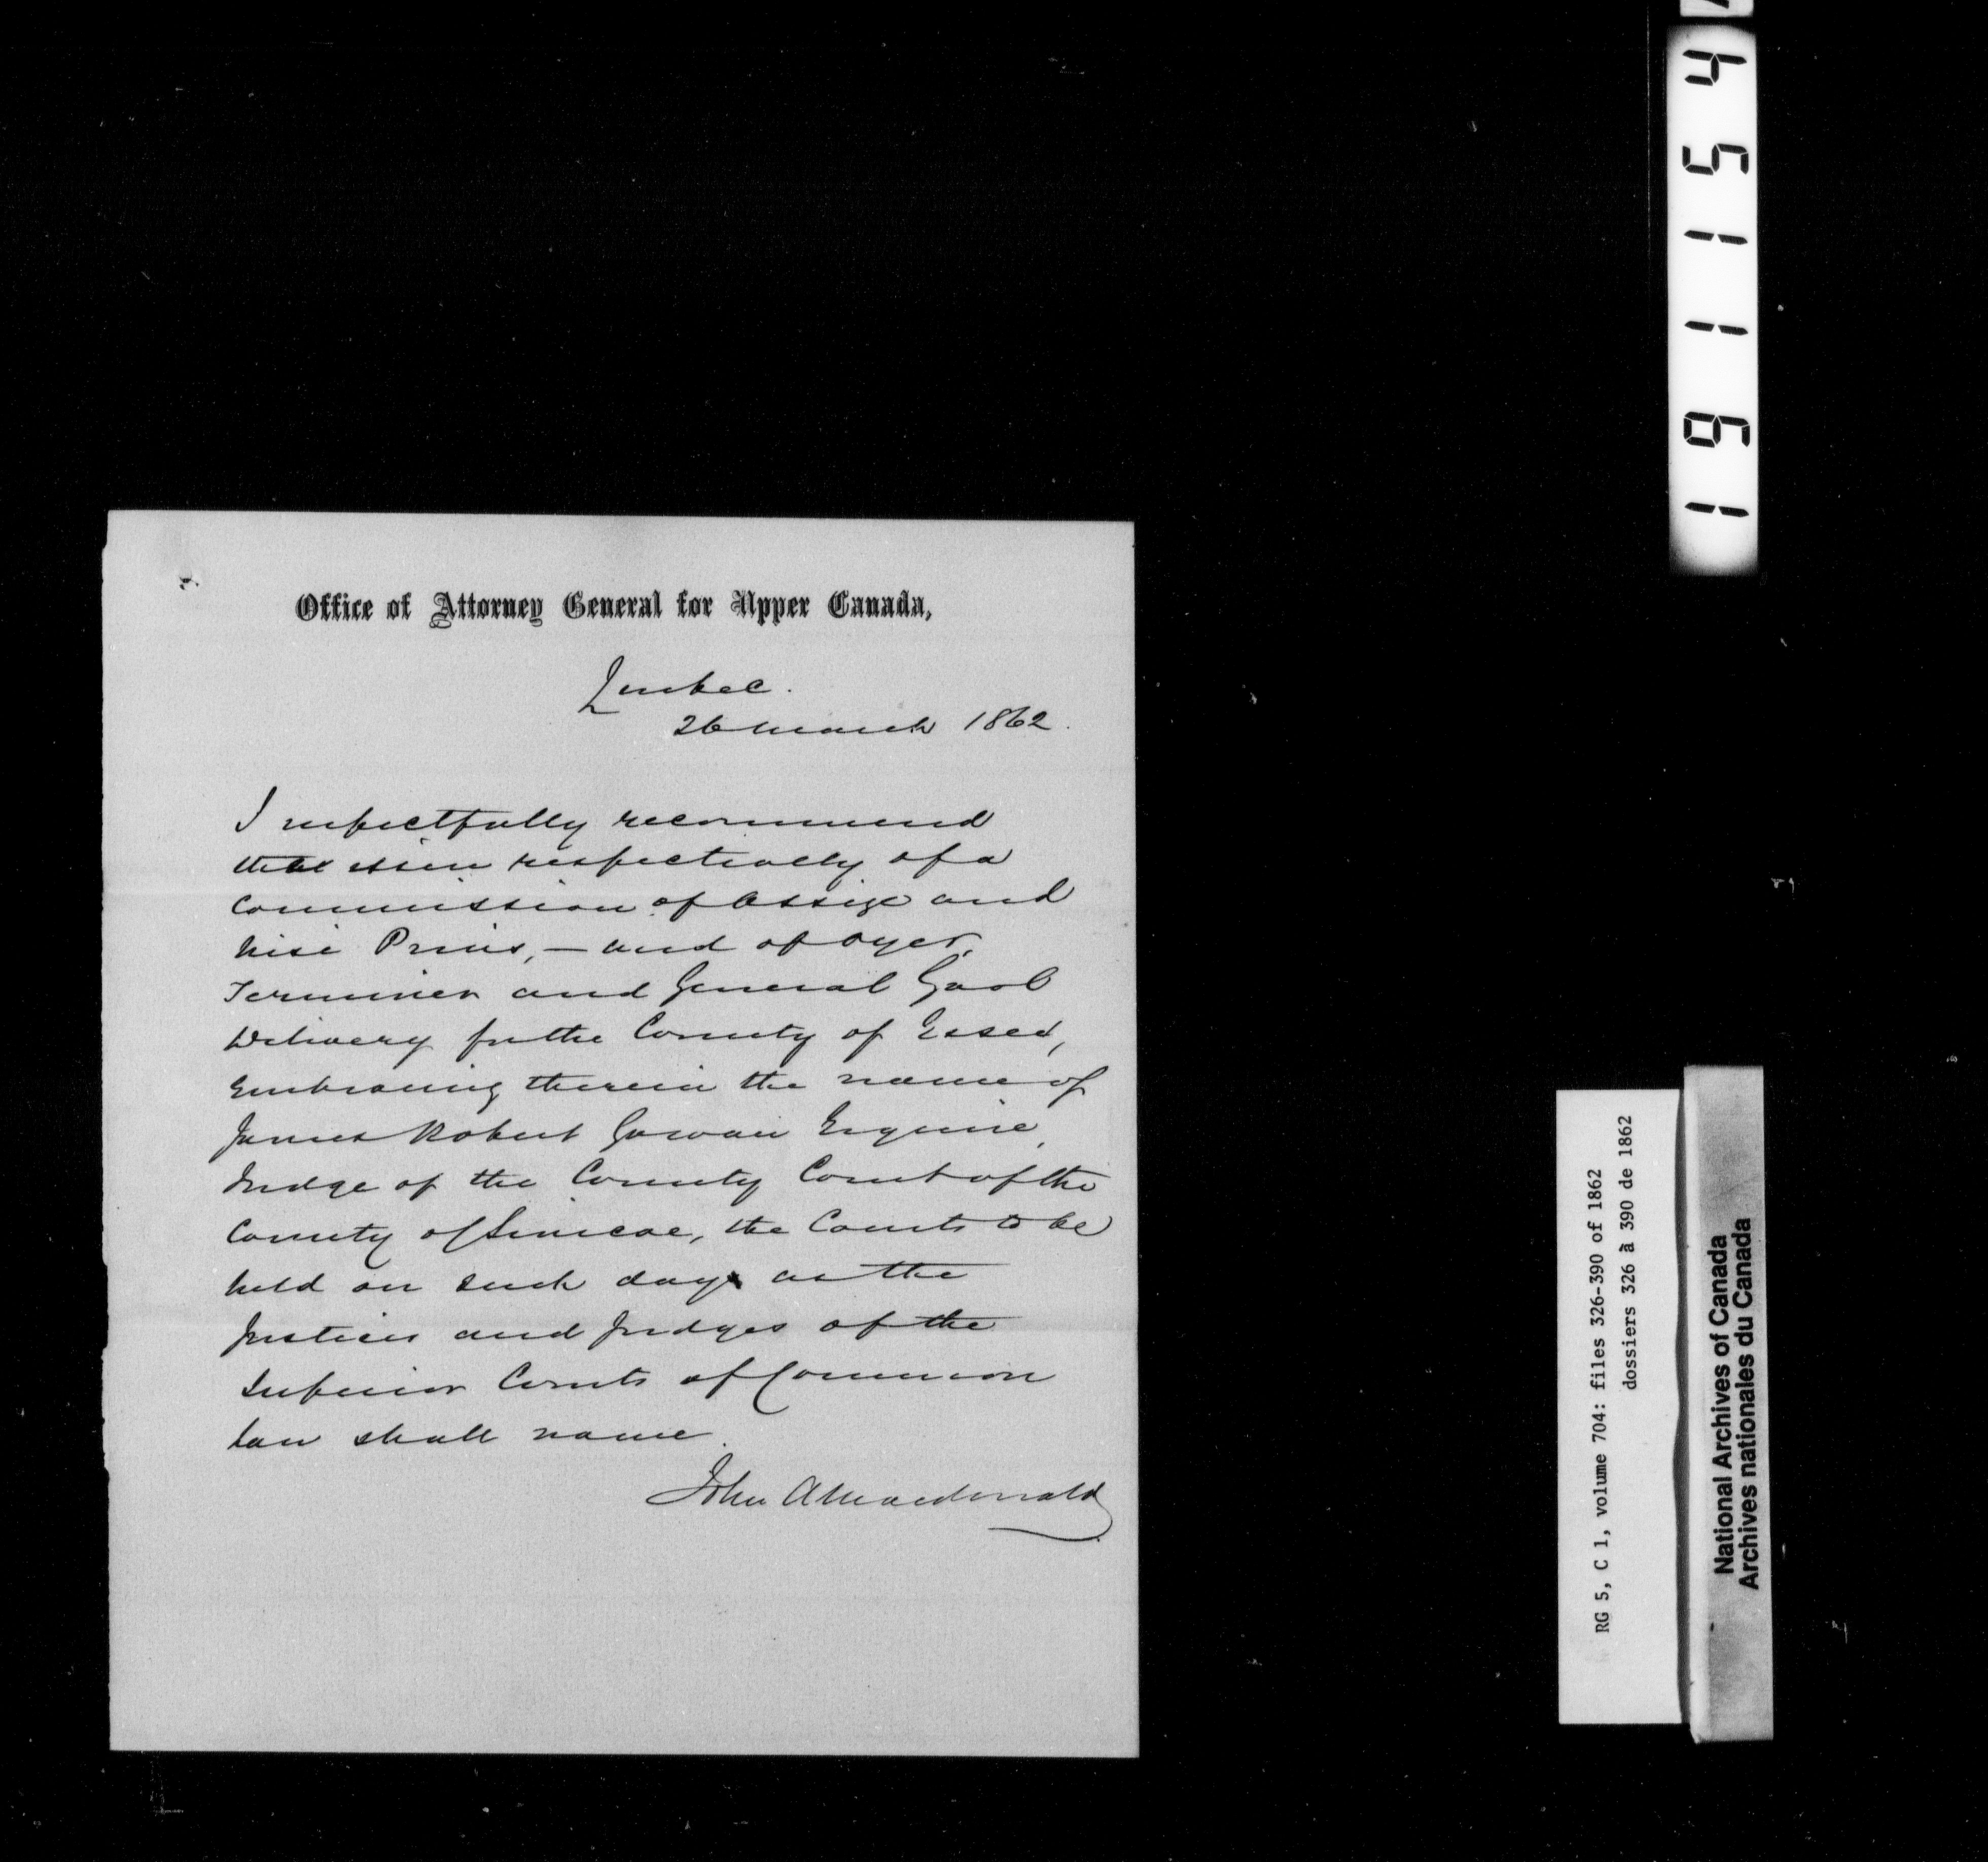 Office of Attorney General for Upper Canada,
Quebec.
26 March 1862.
I respectfully recommend
the issue respectively of a
Commission of Assize and
Nisi Prius, — and of Oyer,
Terminer and General Gaol
Delivery for the County of Essex,
Embracing therein the name of
James Robert Gowan Esquire,
Judge of the County Court of the
County of Simcoe, the Courts to be
held on such days as the
Justices and Judges of the
Superior Courts of Common
Law shall name.
John A Macdonald
191154
RG 5, C 1, volume 704: files 326-390 of 1862
dossiers 326 à 390 de 1862
National Archives of Canada
Archives nationales du Canada